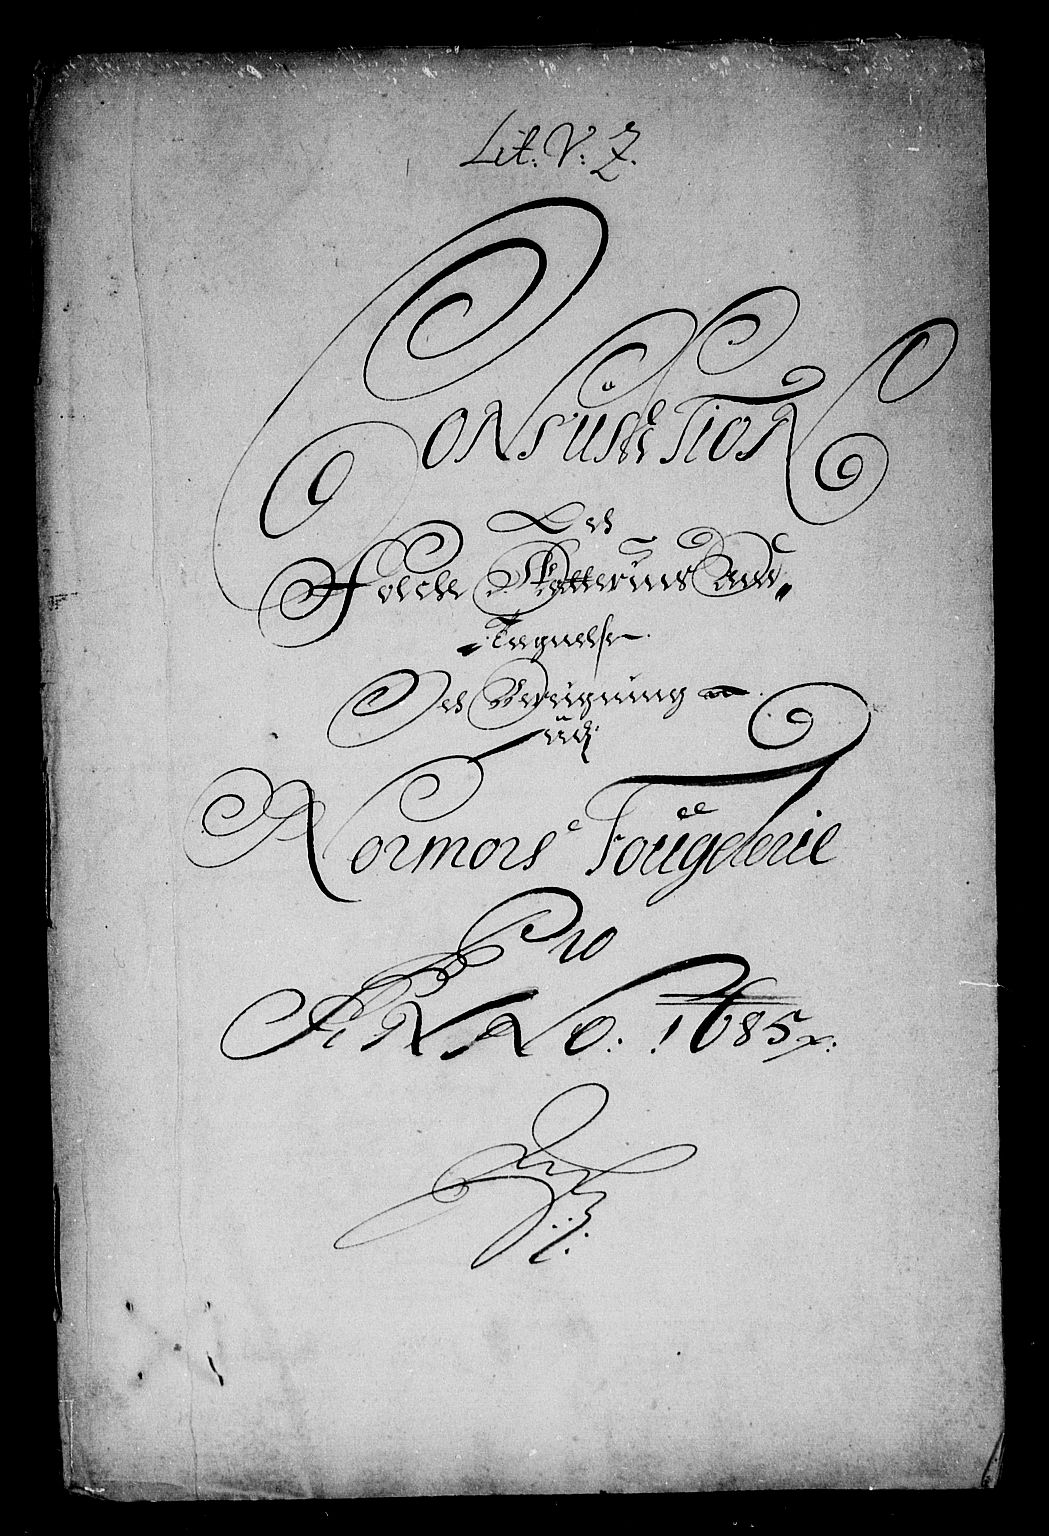 Lit. V: Z.
Consumtion
Och
Folche Skatternis Ann„
„Tegnelse
Och Beregning
üdj
Normors Fougderie
Pro
ANNO. 1685